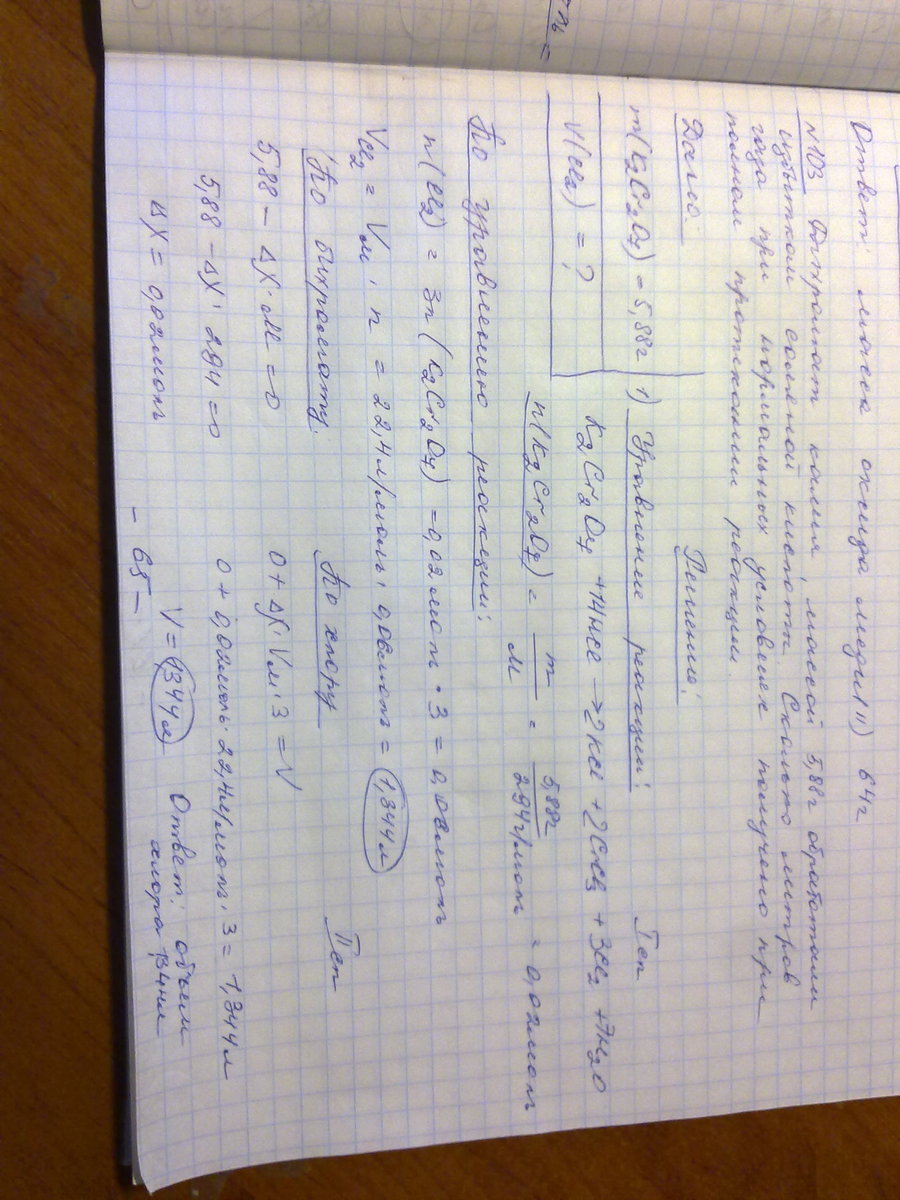 Ответ: масса оксида меди(II) 64г
№103 Бихромат калия, массой 5,88г обработали
избытком соляной кислоты. Сколько литров
газа при нормальных условиях получено при
полном протекании реакции.
Дано: Решение:
m(K2Cr2O7) = 5,88г 1) Уравнение реакции: I сп
V(Cl2) = ? K2Cr2O7 + 14HCl → 2KCl + 2CrCl3 + 3Cl2 + 7H2O
n(K2Cr2O7) = m/M = 5,88г/294г/моль = 0,02моль
По уравнению реакции:
n(Cl2) = 3n(K2Cr2O7) = 0,02моль · 3 = 0,06моль
VCl2 = Vм · n = 22,4л/моль · 0,06моль = 1,344л
По бихромату: По хлору II сп
5,88 - ΔX · M = 0 0 + ΔX · Vм · 3 = V
5,88 - ΔX · 294 = 0 0 + 0,02моль · 22,4л/моль · 3 = 1,344л
ΔX = 0,02моль V = 1,344л Ответ: объем
хлора 1,344л
- 65 -